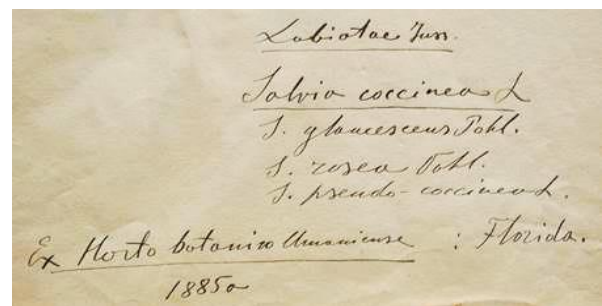 Labiatae Juss.
Salvia coccinea L
S. glaucescens Pohl.
S. rosea Vahl.
S. pseudo-coccinea L.
Ex Horto botanico Umaniense : Florida.
1885a